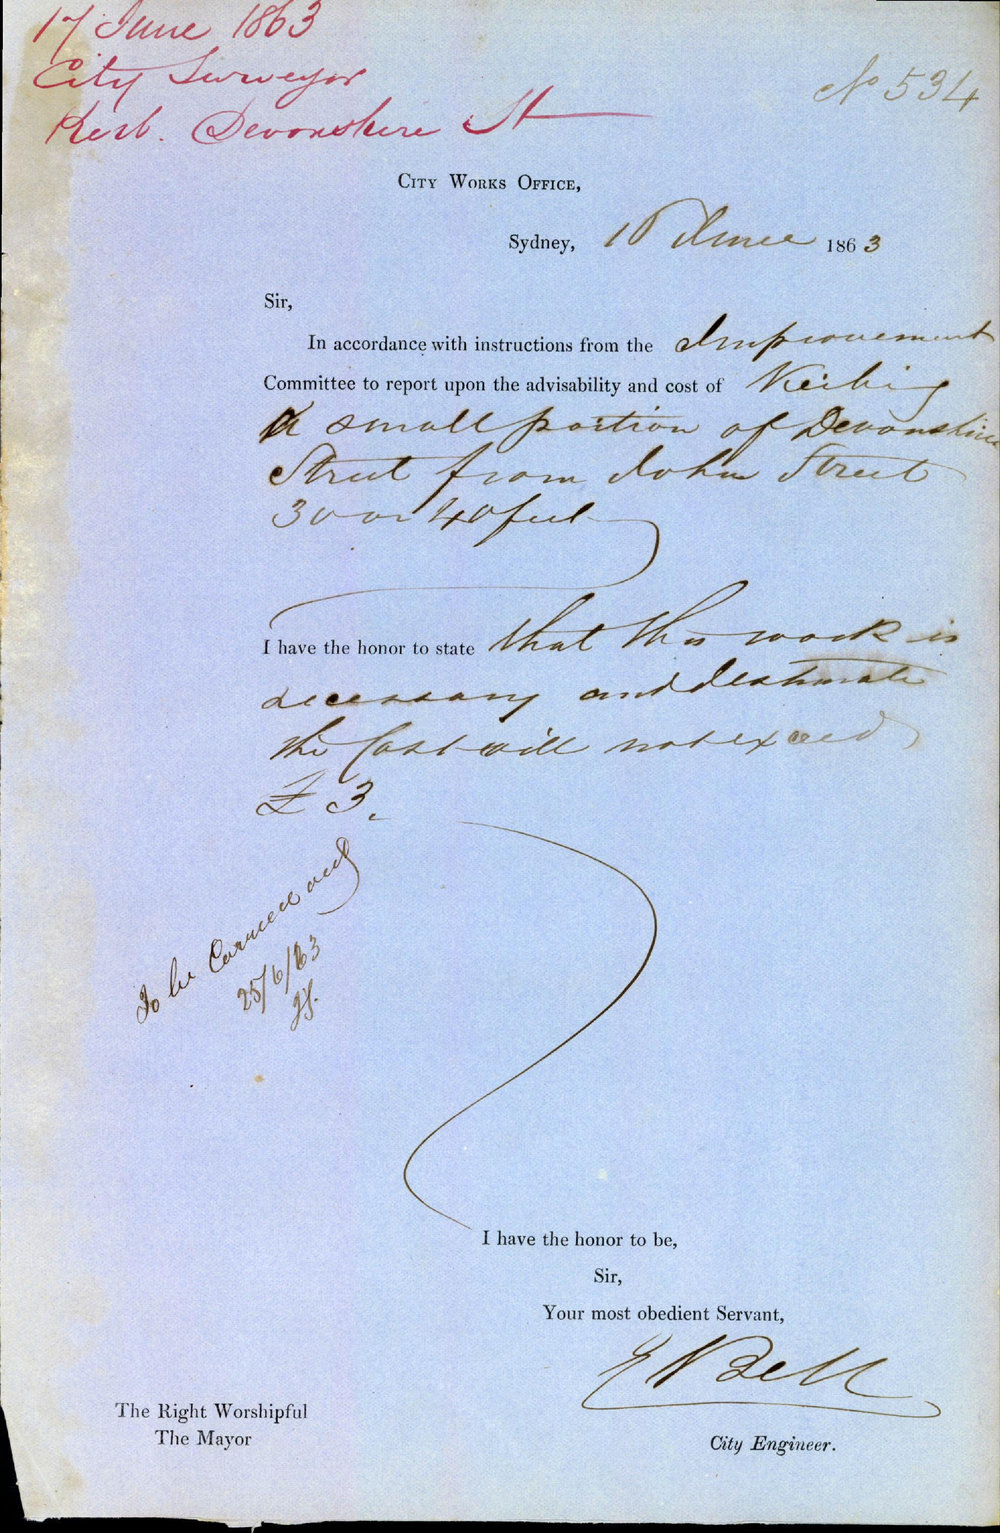 17 June 1863
City Surveyor
Kerb. Devonshire St
No 534
City Works Office,
Sydney, 16 June 1863
Sir,
In accordance with instructions from the Improvement
Committee to report upon the advisability and cost of Kerbing
a small portion of Devonshire
Street from John Street
30 or 40 feet
I have the honor to state that this work is
necessary and I estimate
the Cost will not exceed
£3.
To be Carried out
25/6/63
I have the honor to be,
Sir,
Your most obedient Servant,
E Bell
City Engineer.
The Right Worshipful
The Mayor